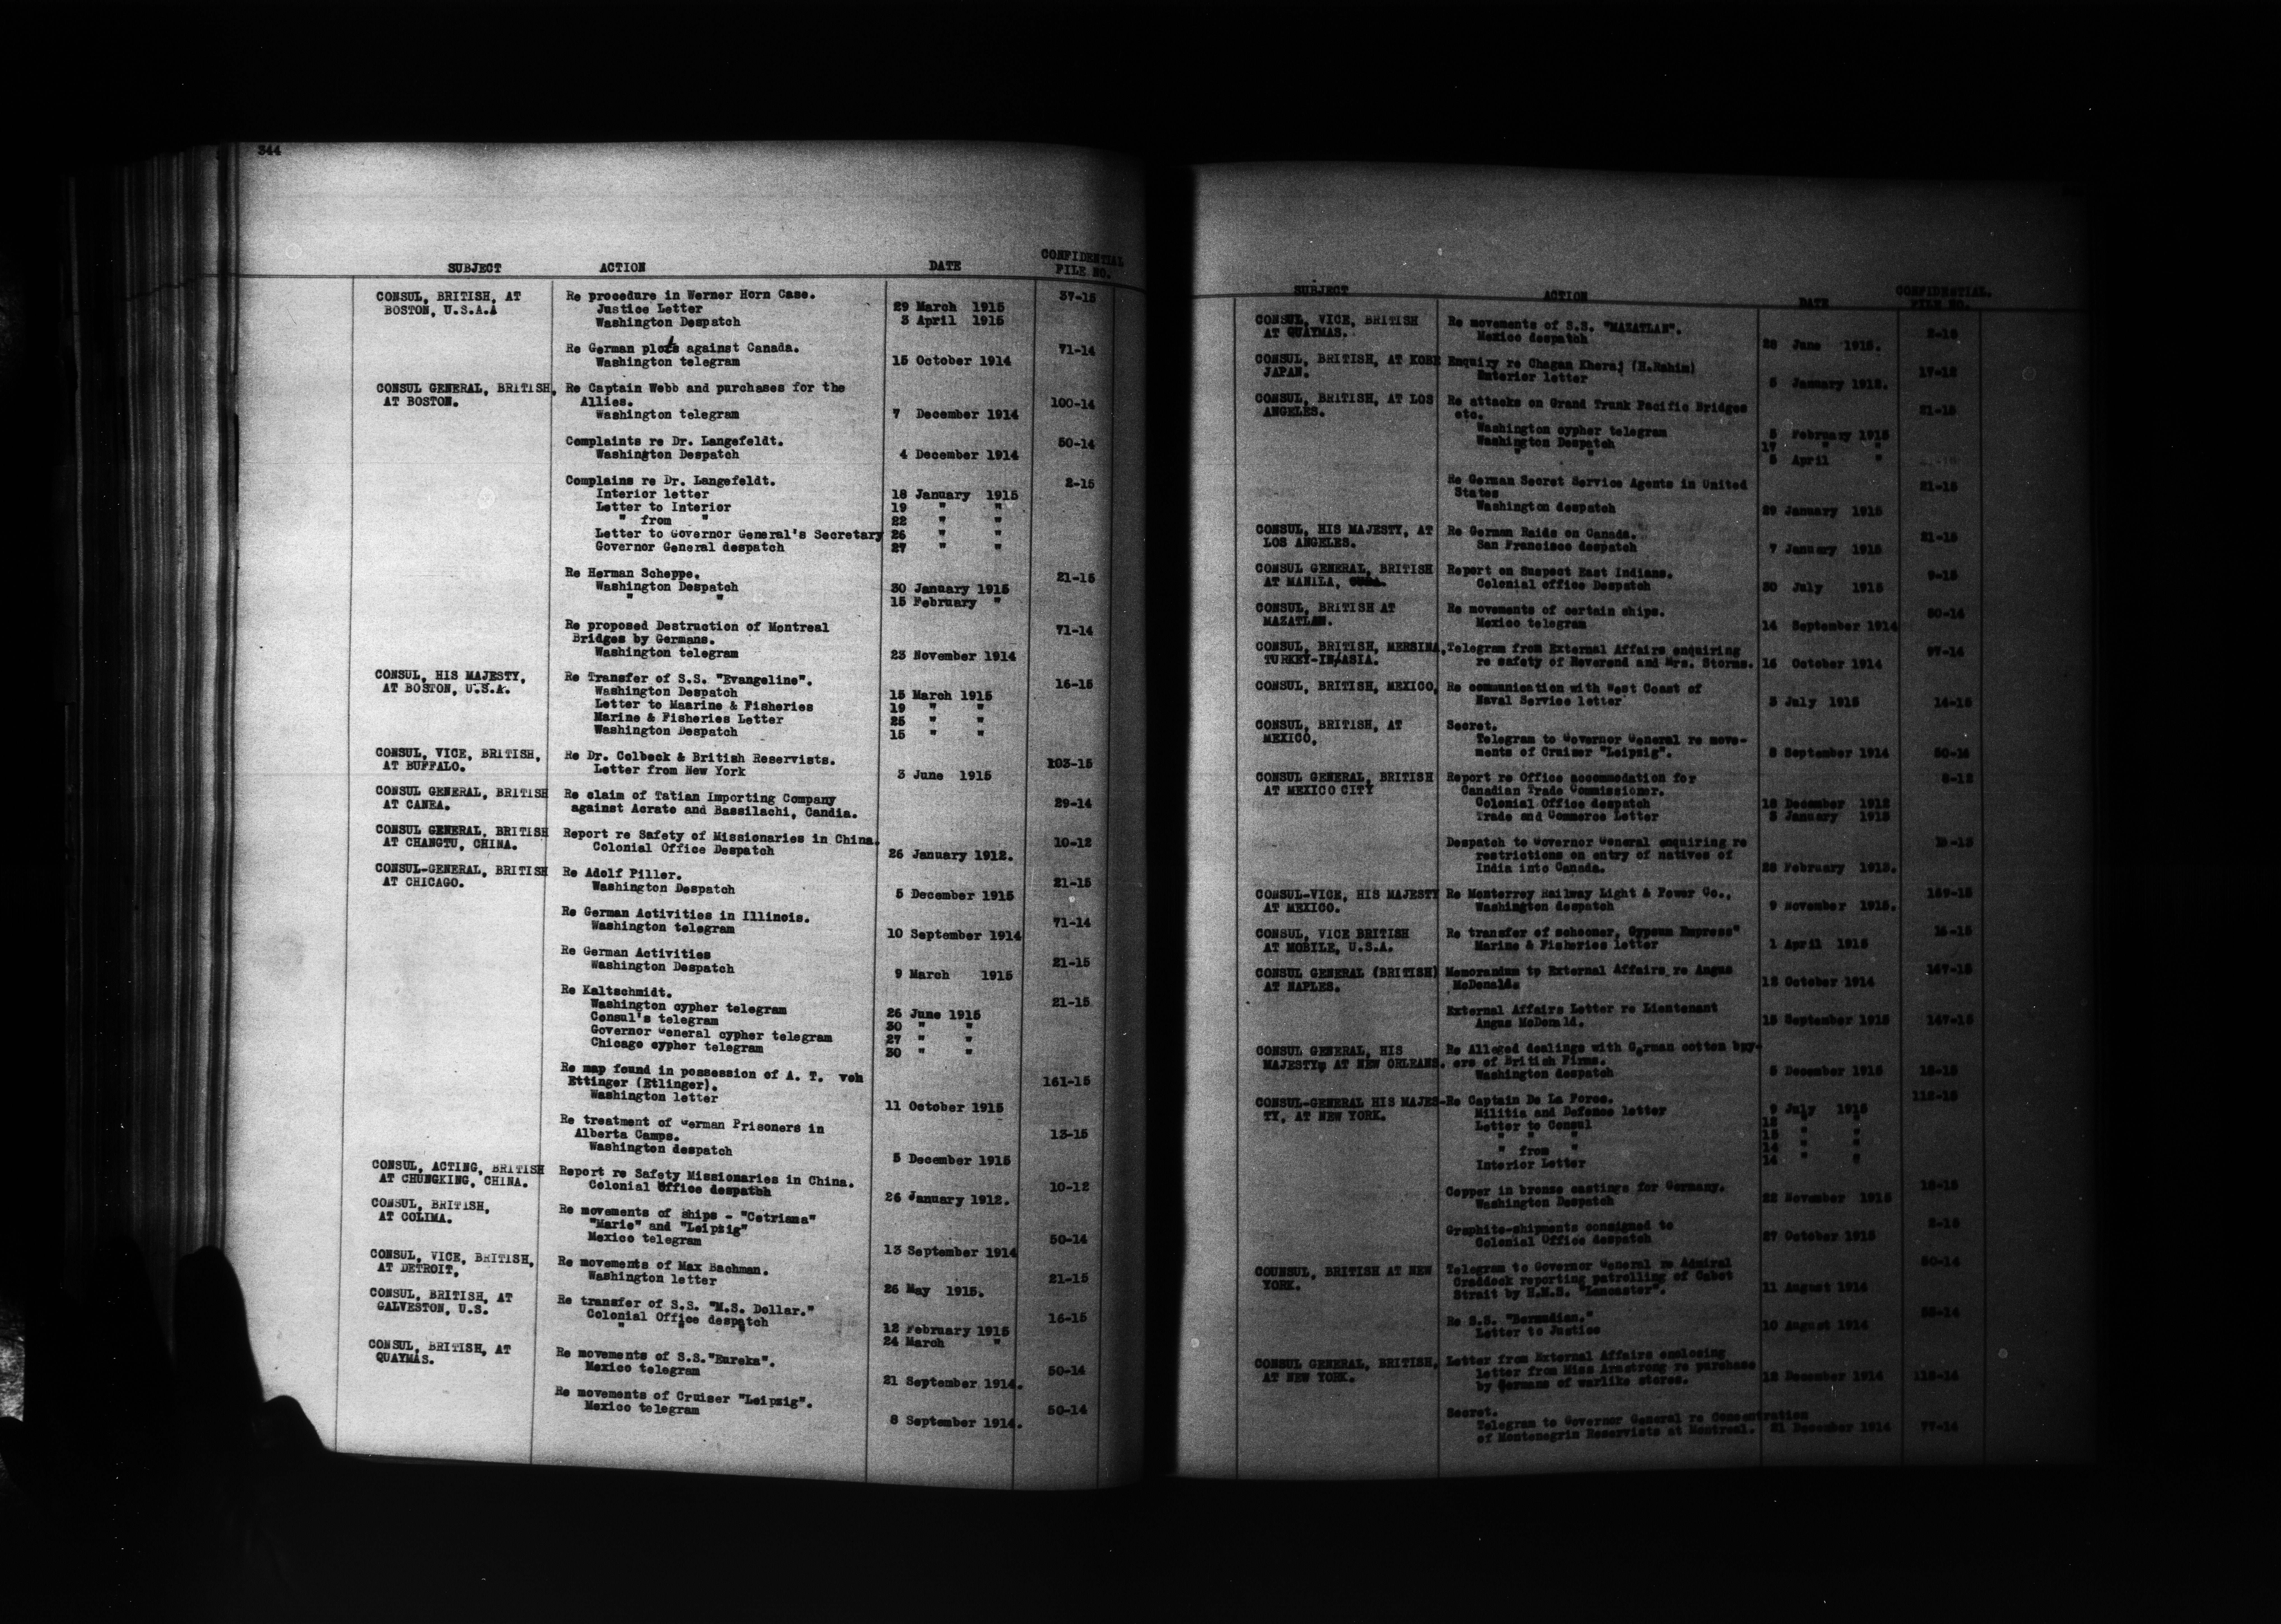 344
SUBJECT ACTION DATE CONFIDENTIAL FILE NO.
CONSUL, BRITISH, AT Re procedure in Werner Horn Case. 37-15
BOSTON, U.S.A.A Justice Letter 29 March 1915
Washington Despatch 3 April 1915
Re German plots against Canada. 71-14
Washington telegram 15 October 1914
CONSUL GENERAL, BRITISH, Re Captain Webb and purchases for the
AT BOSTON. Allies. 100-14
Washington telegram 7 December 1914
Complaints re Dr. Langefeldt. 50-14
Washington Despatch 4 December 1914
Complains re Dr. Langefeldt. 2-15
Interior letter 18 January 1915
Letter to Interior 19 " "
" from " 22 " "
Letter to Governor General's Secretary 26 " "
Governor General despatch 27 " "
Re Herman Scheppe. 21-15
Washington Despatch 30 January 1915
" " 15 February "
Re proposed Destruction of Montreal 71-14
Bridges by Germans.
Washington telegram 23 November 1914
CONSUL, HIS MAJESTY, Re Transfer of S.S. "Evangeline". 16-15
AT BOSTON, U.S.A. Washington Despatch 15 March 1915
Letter to Maarine & Fisheries 19 " "
Marine & Fisheries Letter 25 " "
Washington Despatch 15 " "
CONSUL, VICE, BRITISH, Re Dr. Colbeck & British Reservists. 103-15
AT BUFFALO. Letter from New York 3 June 1915
CONSUL GENERAL, BRITISH Re claim of Tatian Importing Company 29-14
AT CANEA. against Acrate and Bassilachi, Candia.
CONSUL GENERAL, BRITISH Report re Safety of Missionaries in China. 10-12
AT CHANGTU, CHINA. Colonial Office Despatch 26 January 1912.
CONSUL-GENERAL, BRITISH Re Adolf Piller. 21-15
AT CHICAGO. Washington Despatch 5 December 1915
Re German Activities in Illinois. 71-14
Washington telegram 10 September 1914
Re German Activities 21-15
Washington Despatch 9 March 1915
Re Kaltschmidt. 21-15
Washington cypher telegram 26 June 1915
Consul's telegram 30 " "
Governor General cypher telegram 27 " "
Chicago cypher telegram 30 " "
Re map found in possession of A. T. von
Ettinger (Etlinger). 161-15
Washington letter 11 October 1915
Re treatment of German Prisoners in
Alberta Camps. 13-15
Washington despatch 5 December 1915
CONSUL, ACTING, BRITISH Report re Safety Missionaries in China. 10-12
AT CHUNGKING, CHINA. Colonial Office despatch 26 January 1912.
CONSUL, BRITISH, Re movements of ships - "Cetriana"
AT COLIMA. "Marie" and "Leipzig" 50-14
Mexico telegram 13 September 1914
CONSUL, VICE, BRITISH, Re movements of Max Bachman. 21-15
AT DETROIT, Washington letter 26 May 1915.
CONSUL, BRITISH, AT Re transfer of S.S. "M.S. Dollar." 16-15
GALVESTON, U.S. Colonial Office despatch 12 February 1915
" " " 24 March "
CONSUL, BRITISH, AT Re movements of S.S."Eureka". 50-14
QUAYMAS. Mexico telegram 21 September 1914.
Re movements of Cruiser "Leipzig". 50-14
Mexico telegram 8 September 1914.
SUBJECT ACTION DATE CONFIDENTIAL. FILE NO.
CONSUL, VICE, BRITISH Re movements of S.S. "MAZATLAN".
AT QUAYMAS. Mexico despatch June 1915.
CONSUL, BRITISH, AT KOBE Enquiry re Chagan Kheraj (H.Rahim) 17-12
JAPAN. Interior letter 5 January 1912.
CONSUL, BRITISH, AT LOS Re attacks on Grand Trunk Pacific Bridges 21-15
ANGELES. etc.
Washington cypher telegram 5 February 1915
Washington Despatch 17 " "
" " 5 April "
Re German Secret Service Agents in United 21-15
States
Washington despatch 29 January 1915
CONSUL, HIS MAJESTY, AT Re German Raids on Canada. 21-15
LOS ANGELES. San Francisco despatch 7 January 1915
CONSUL GENERAL, BRITISH Report on Suspect East Indians. 9-15
AT MANILA, Colonial office Despatch 30 July 1915
CONSUL, BRITISH AT Re movements of certain ships. 50-14
MAZATLAN. Mexico telegram 14 September 1914
CONSUL, BRITISH, MERSINA, Telegram from External Affairs enquiring 97-14
TURKEY-IN-ASIA. re safety of Reverend and Mrs. Storms. 16 October 1914
CONSUL, BRITISH, MEXICO, Re communication with West Coast of
Naval Service letter 3 July 1915 14-15
CONSUL, BRITISH, AT Secret.
MEXICO, Telegram to Governor General re move-
ments of Cruiser "Leipzig". 8 September 1914 50-14
CONSUL GENERAL, BRITISH Report re Office accommodation for 8-12
AT MEXICO CITY Canadian Trade Commissioner.
Colonial Office despatch 18 December 1912
Trade and Commerce Letter 3 January 1913
Despatch to Governor General enquiring re
restrictions on entry of natives of
India into Canada. 28 February 1913.
CONSUL-VICE, HIS MAJESTY Re Monterrey Railway Light & Power Co., 169-15
AT MEXICO. Washington despatch 9 November 1915.
CONSUL, VICE BRITISH Re transfer of schooner, Gypsum Empress" 16-15
AT MOBILE, U.S.A. Marine & Fisheries letter 1 April 1915
CONSUL GENERAL (BRITISH) Memorandum to External Affairs re Angus 147-15
AT NAPLES. McDonald. 12 October 1914
External Affairs Letter re Lieutenant
Angus McDonald. 15 September 1915 147-15
CONSUL GENERAL, HIS Re Alleged dealings with German cotton buy-
MAJESTY, AT NEW ORLEANS. ers of British Firms.
Washington despatch 6 December 1915 18-15
CONSUL-GENERAL HIS MAJES- Re Captain De La Force. 112-15
TY, AT NEW YORK. Militia and Defence letter 9 July 1915
Letter to Consul 12 " "
" " " 15 " "
" from " 14 " "
Interior Letter 14 " "
Copper in bronze castings for Germany. 18-15
Washington Despatch 22 November 1915
Graphite-shipments consigned to
Colonial Office despatch 27 October 1915
COUNSUL, BRITISH AT NEW Telegram to Governor General re Admiral 50-14
YORK. Craddock reporting patrolling of Cabot
Strait by H.M.S. "Lancaster". 11 August 1914
Re S.S. "Bermudian."
Letter to Justice 10 August 1914
CONSUL GENERAL, BRITISH, Letter from External Affairs enclosing
AT NEW YORK. letter from Miss Armstrong re purchase
by Germans of warlike stores. 12 December 1914
Secret.
Telegram to Governor General re Concentration
of Montenegrin Reservists at Montreal. 21 December 1914 77-14